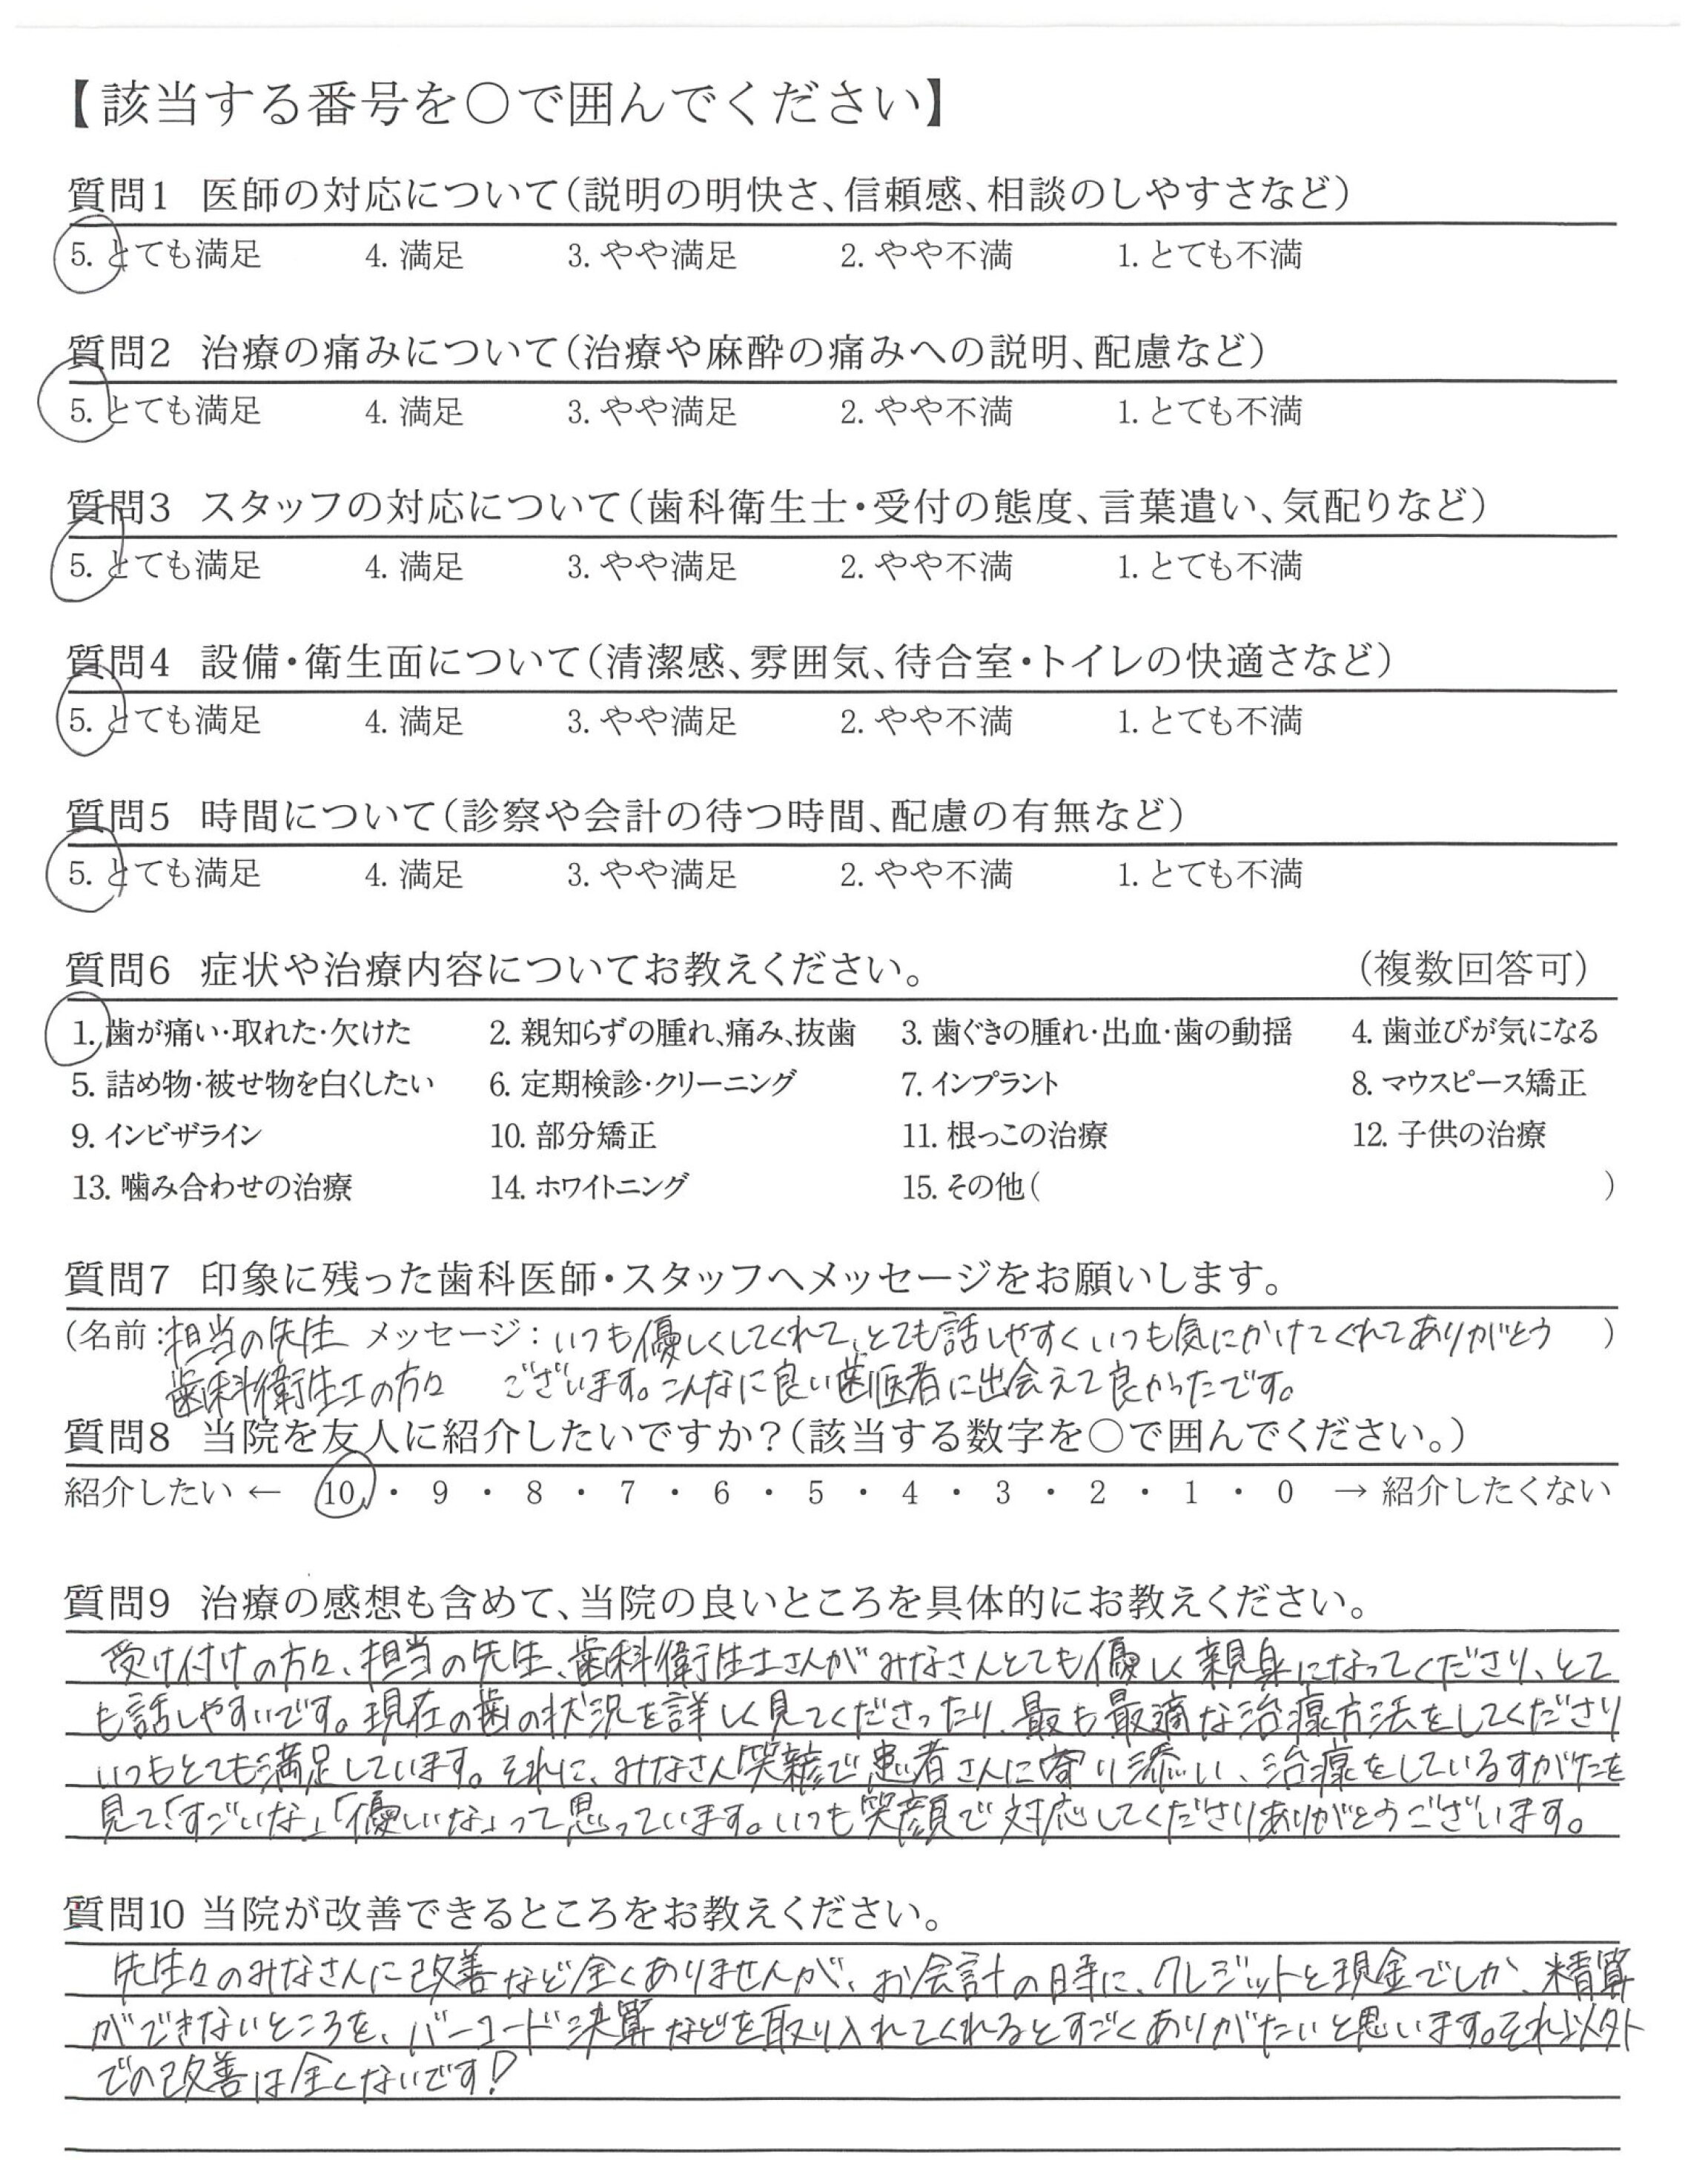 【該当する番号を○で囲んでください】
質問1 医師の対応について（説明の明快さ、信頼感、相談のしやすさなど）
5. とても満足 4. 満足 3. やや満足 2. やや不満 1. とても不満
質問2 治療の痛みについて（治療や麻酔の痛みへの説明、配慮など）
5. とても満足 4. 満足 3. やや満足 2. やや不満 1. とても不満
質問3 スタッフの対応について（歯科衛生士・受付の態度、言葉遣い、気配りなど）
5. とても満足 4. 満足 3. やや満足 2. やや不満 1. とても不満
質問4 設備・衛生面について（清潔感、雰囲気、待合室・トイレの快適さなど）
5. とても満足 4. 満足 3. やや満足 2. やや不満 1. とても不満
質問5 時間について（診察や会計の待つ時間、配慮の有無など）
5. とても満足 4. 満足 3. やや満足 2. やや不満 1. とても不満
質問6 症状や治療内容についてお教えください。 （複数回答可）
1. 歯が痛い・取れた・欠けた 2. 親知らずの腫れ、痛み、抜歯 3. 歯ぐきの腫れ・出血・歯の動揺 4. 歯並びが気になる
5. 詰め物・被せ物を白くしたい 6. 定期検診・クリーニング 7. インプラント 8. マウスピース矯正
9. インビザライン 10. 部分矯正 11. 根っこの治療 12. 子供の治療
13. 噛み合わせの治療 14. ホワイトニング 15. その他（ ）
質問7 印象に残った歯科医師・スタッフへメッセージをお願いします。
（名前：担当の先生 メッセージ：いつも優しくしてくれて、とても話しやすくいつも気にかけてくれてありがとう ）
歯科衛生士の方々 ございます。こんなに良い歯医者に出会えて良かったです。
質問8 当院を友人に紹介したいですか？（該当する数字を○で囲んでください。）
紹介したい ← 10 ・ 9 ・ 8 ・ 7 ・ 6 ・ 5 ・ 4 ・ 3 ・ 2 ・ 1 ・ 0 → 紹介したくない
質問9 治療の感想も含めて、当院の良いところを具体的にお教えください。
受け付けの方々、担当の先生、歯科衛生士さんがみなさんとても優しく親身になってくださり、とて
も話しやすいです。現在の歯の状況を詳しく見てくださったり、最も最適な治療方法をしてくださり
いつもとても満足しています。それに、みなさん笑顔で患者さんに寄り添い、治療をしているすがたを
見て「すごいな」「優しいな」って思っています。いつも笑顔で対応してくださりありがとうございます。
質問10 当院が改善できるところをお教えください。
先生々のみなさんに改善など全くありませんが、お会計の時に、クレジットと現金でしか、精算
ができないところを、バーコード決算などを取り入れてくれるとすごくありがたいと思います。それ以外
での改善は全くないです！